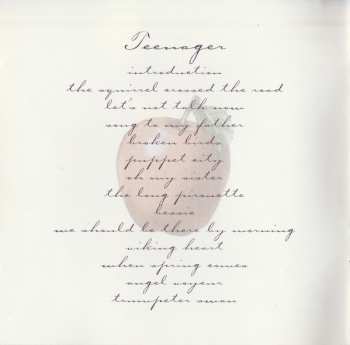 Teenager
introduction
the squirrel crossed the road
let's not talk now
song to my father
broken birds
puppet city
oh my sister
the long pirouette
bessie
we should be there by morning
viking heart
when spring comes
angel voyeur
trumpeter swan